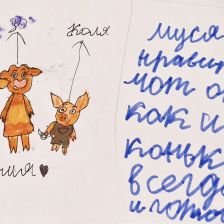 Коля
муся
нрави
мот о
как и
коньк
всегд
и гото